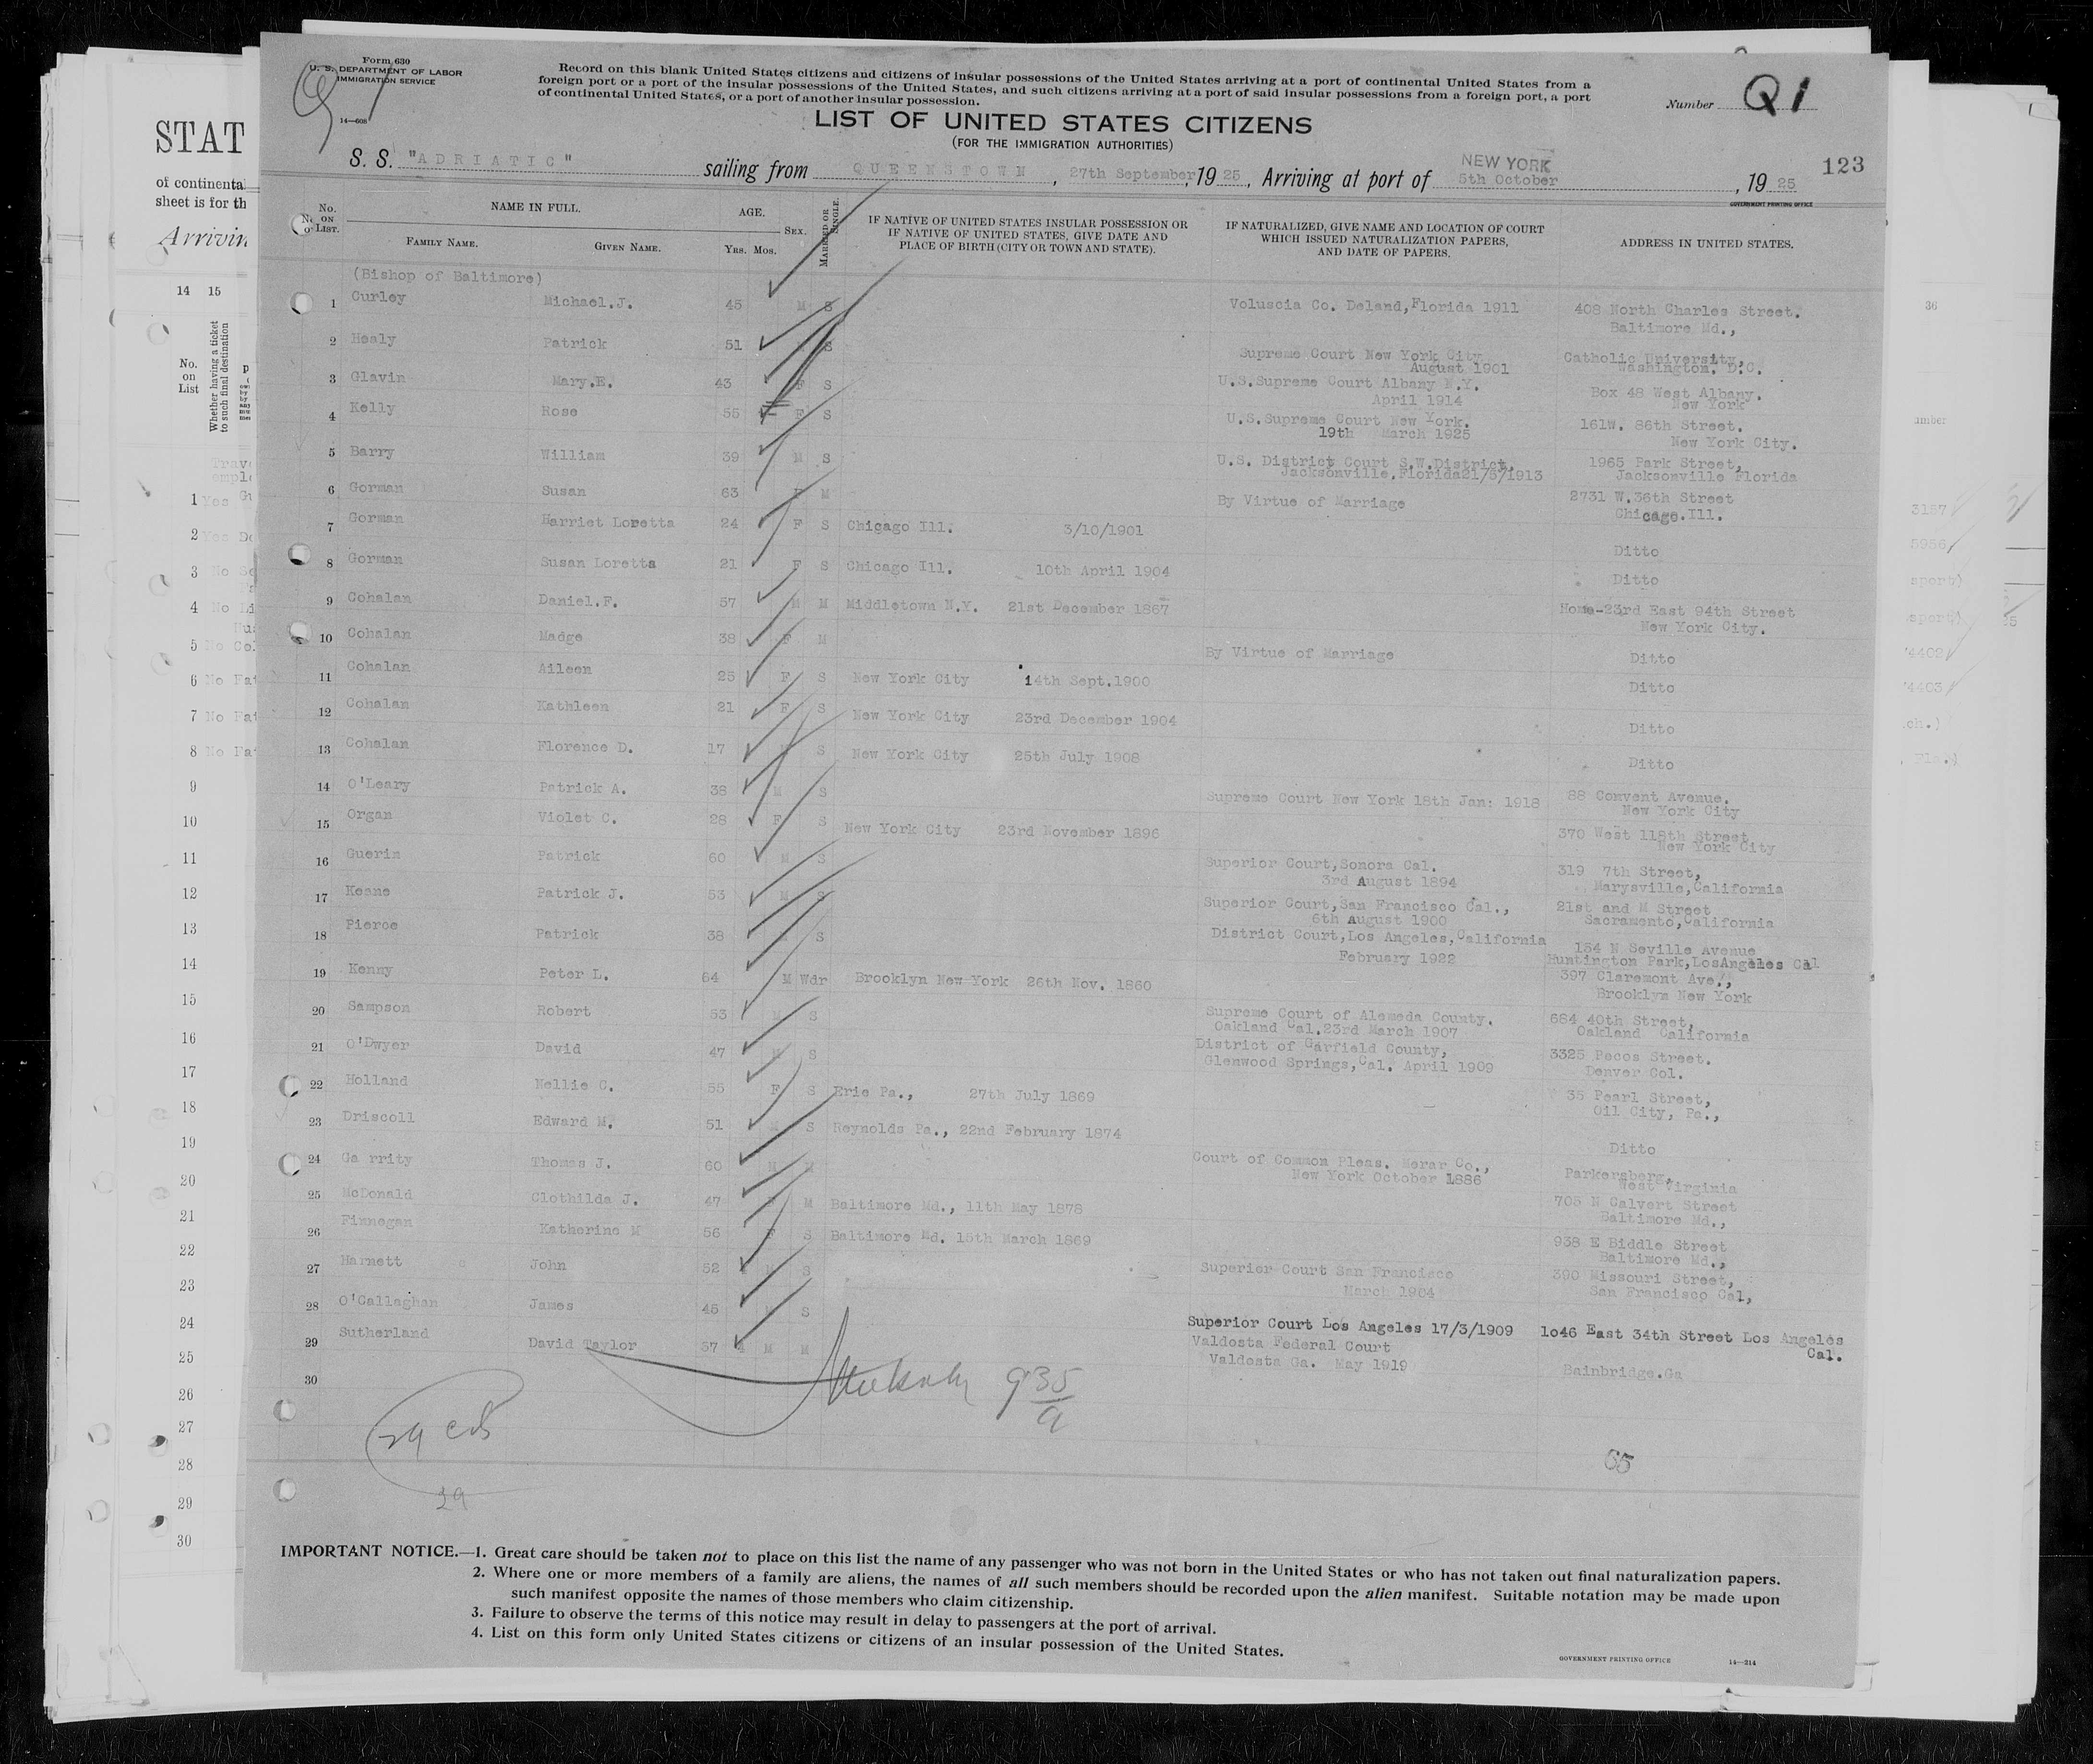 Form 630
U. S. DEPARTMENT OF LABOR
IMMIGRATION SERVICE
14—608
Record on this blank United States citizens and citizens of insular possessions of the United States arriving at a port of continental United States from a
foreign port or a port of the insular possessions of the United States, and such citizens arriving at a port of said insular possessions from a foreign port, a port
of continental United States, or a port of another insular possession.
Number Q1
LIST OF UNITED STATES CITIZENS
(FOR THE IMMIGRATION AUTHORITIES)
S. S. "ADRIATIC" sailing from QUEENSTOWN, 27th September, 1925, Arriving at port of NEW YORK 5th October, 1925
123
GOVERNMENT PRINTING OFFICE
No. ON LIST.
NAME IN FULL.
FAMILY NAME. GIVEN NAME.
AGE.
Yrs. Mos.
SEX.
MARRIED OR SINGLE.
IF NATIVE OF UNITED STATES INSULAR POSSESSION OR
IF NATIVE OF UNITED STATES, GIVE DATE AND
PLACE OF BIRTH (CITY OR TOWN AND STATE).
IF NATURALIZED, GIVE NAME AND LOCATION OF COURT
WHICH ISSUED NATURALIZATION PAPERS,
AND DATE OF PAPERS.
ADDRESS IN UNITED STATES.
(Bishop of Baltimore)
1 Curley Michael.J. 45 M S Voluscia Co. Deland, Florida 1911 408 North Charles Street.
Baltimore Md.,
2 Healy Patrick 51 S Supreme Court New York City Catholic University,
August 1901 Washington. D.C.
3 Glavin Mary.E. 43 F S U.S.Supreme Court Albany N.Y.
April 1914 Box 48 West Albany.
New York
4 Kelly Rose 55 F S U.S.Supreme Court New York. 161W. 86th Street.
19th March 1925 New York City.
5 Barry William 39 M S U.S. District Court S.W.District, 1965 Park Street,
Jacksonville.Florida21/5/1913 Jacksonville Florida
6 Gorman Susan 63 F M By Virtue of Marriage 2731 W.36th Street
Chicago.Ill.
7 Gorman Harriet Loretta 24 F S Chicago Ill. 3/10/1901 Ditto
8 Gorman Susan Loretta 21 F S Chicago Ill. 10th April 1904 Ditto
9 Cohalan Daniel.F. 57 M M Middletown N.Y. 21st December 1867 Home-23rd East 94th Street
New York City.
10 Cohalan Madge 38 F M By Virtue of Marriage Ditto
11 Cohalan Aileen 25 F S New York City 14th Sept.1900 Ditto
12 Cohalan Kathleen 21 F S New York City 23rd December 1904 Ditto
13 Cohalan Florence D. 17 S New York City 25th July 1908 Ditto
14 O'Leary Patrick A. 38 M S Supreme Court New York 18th Jan: 1918 88 Convent Avenue.
New York City
15 Organ Violet C. 28 F S New York City 23rd November 1896 370 West 118th Street
New York City
16 Guerin Patrick 60 M S Superior Court,Sonora Cal. 319 7th Street,
3rd August 1894 Marysville,California
17 Keane Patrick J. 53 M S Superior Court,San Francisco Cal., 21st and M Street
6th August 1900 Sacramento,California
18 Pierce Patrick 38 S District Court,Los Angeles,California 154 N Seville Avenue
February 1922 Huntington Park,LosAngeles Cal
19 Kenny Peter L. 64 M Wdr Brooklyn New York 26th Nov. 1860 397 Claremont Ave.,
Brooklyn New York
20 Sampson Robert 53 M S Supreme Court of Alameda County. 684 40th Street,
Oakland Cal.23rd March 1907 Oakland California
21 O'Dwyer David 47 M S District of Garfield County, 3325 Pecos Street.
Glenwood Springs,Cal. April 1909 Denver Col.
22 Holland Nellie C. 55 F S Erie Pa., 27th July 1869 35 Pearl Street,
Oil City, Pa.,
23 Driscoll Edward M. 51 S Reynolds Pa., 22nd February 1874 Ditto
24 Ga rrity Thomas J. 60 M M Court of Common Pleas. Merar Co., Parkersberg,
New York October 1886 West Virginia
25 McDonald Clothilda J. 47 M Baltimore Md., 11th May 1878 705 N Calvert Street
Baltimore Md.,
26 Finnegan Katherine M 56 F S Baltimore Md. 15th March 1869 938 E Biddle Street
Baltimore Md.,
27 Harnett John 52 M S Superior Court San Francisco 390 Missouri Street,
March 1904 San Francisco Cal,
28 O'Callaghan James 45 S Superior Court Los Angeles 17/3/1909 1o46 East 34th Street Los Angeles
Cal.
29 Sutherland David Taylor 37 M M Valdosta Federal Court
Valdosta Ga. May 1919 Bainbridge.Ga
30
935
29
65
IMPORTANT NOTICE.—1. Great care should be taken not to place on this list the name of any passenger who was not born in the United States or who has not taken out final naturalization papers.
2. Where one or more members of a family are aliens, the names of all such members should be recorded upon the alien manifest. Suitable notation may be made upon
such manifest opposite the names of those members who claim citizenship.
3. Failure to observe the terms of this notice may result in delay to passengers at the port of arrival.
4. List on this form only United States citizens or citizens of an insular possession of the United States.
GOVERNMENT PRINTING OFFICE 14—214
STAT
of continental
sheet is for th
Arrivin
14 15
No.
on
List
Whether having a ticket
to such final destination
1 Yes
2 Yes
3 No
4 No
5 No
6 No
7 No
8 No
9
10
11
12
13
14
15
16
17
18
19
20
21
22
23
24
25
26
27
28
29
30
36
3157
5956